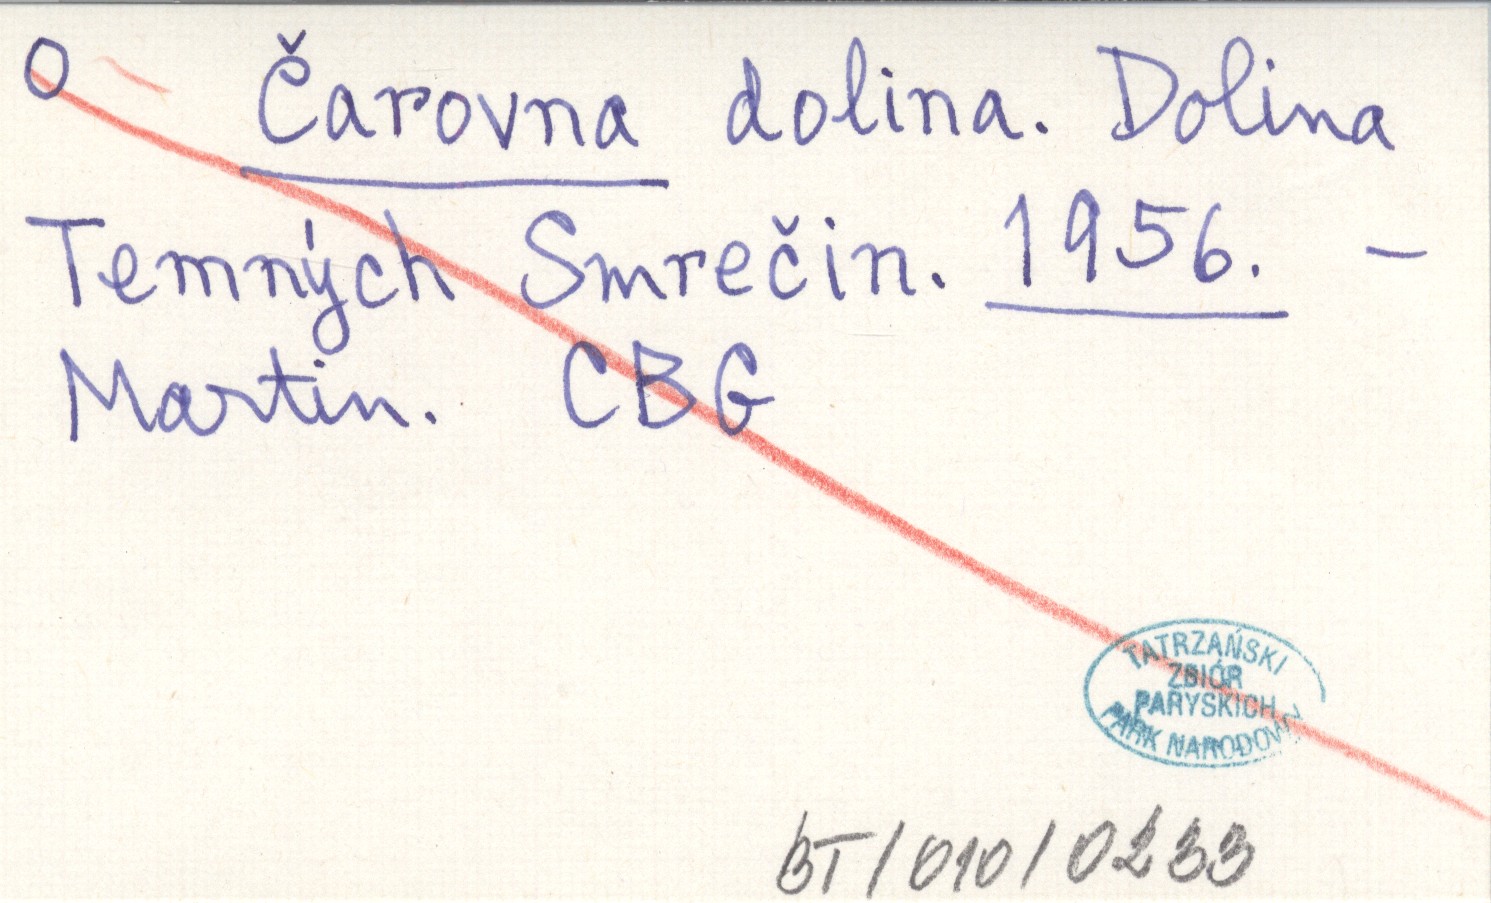 O Čarovna dolina. Dolina
Temných Smrečin. 1956. –
Martin. CBG
TATRZAŃSKI
ZBIÓR
PARYSKICH
PARK NARODOWY
BT/010/0233